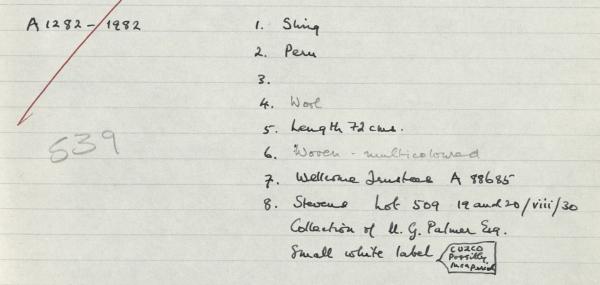 A 1282 - 1982
1. Sling
2. Peru
3.
4. Wool
5. Length 72 cms.
539
6. Woven - multicoloured
7. Wellcome Trustees A 88685
8. Stevens Lot 509 19 and 20/viii/30
Collection of H. G. Palmer Esq.
Small white label
CUZCO
Possibly
Inca period